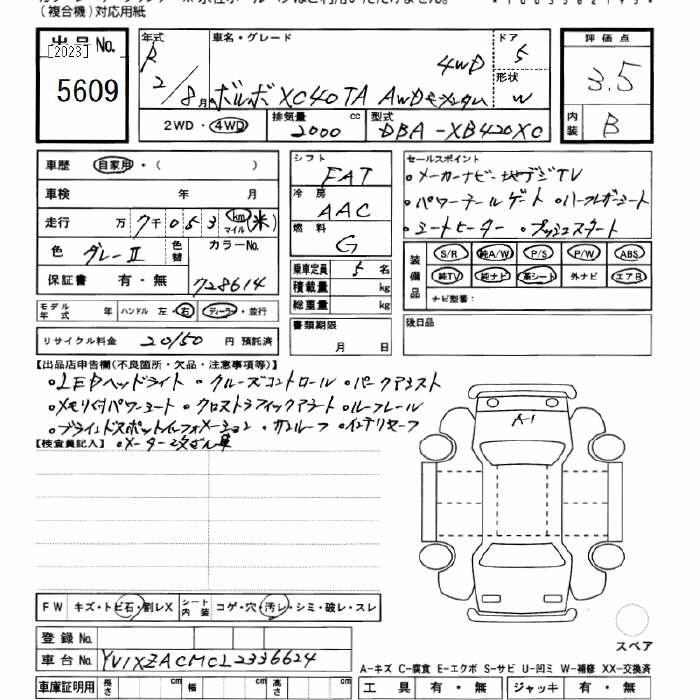 (複合機)対応用紙
出品No. [2023] 5609
年式 R 2/8月
車名・グレード ボルボ XC40 TA AWD モメンタム 4WD
ドア 5
形状 W
評価点 3.5
内装 B
2WD・4WD 排気量 2000 cc 型式 DBA-XB420XC
車歴 自家用・( )
車検 年 月
走行 万 7千053 km マイル (米)
色 グレーII 色替 カラーNo. 728614
保証書 有・無
モデル年式 年 ハンドル 左・右 ディーラー・並行
リサイクル料金 20150 円 預託済
シフト FAT
冷房 AAC
燃料 G
乗車定員 5 名
積載量 kg
総重量 kg
書類期限 月 日
セールスポイント
・メーカーナビ・地デジTV
・パワーテールゲート ・ハーフレザーシート
・シートヒーター ・プッシュスタート
装備品 S/R 純A/W P/S P/W ABS
純TV 純ナビ 革シート 外ナビ エアB
ナビ型番:
後日品
【出品店申告欄(不良箇所・欠品・注意事項等)】
・LEDヘッドライト ・クルーズコントロール ・パークアシスト
・メモリ付パワーシート ・クロストラフィックアラート ・ルーフレール
・ブラインドスポットインフォメーション ・サンルーフ ・インテリセーフ
【検査員記入】 ・メーター改ざん車
A-1
FW キズ・トビ石・割レX シート内装 コゲ・穴・汚レ・シミ・破レ・スレ
登録No.
車台No. YV1XZACMCL2336624
スペア
A-キズ C-腐食 E-エクボ S-サビ U-凹ミ W-補修 XX-交換済
車庫証明用 長さ cm 幅 cm 高さ cm 工具 有・無 ジャッキ 有・無